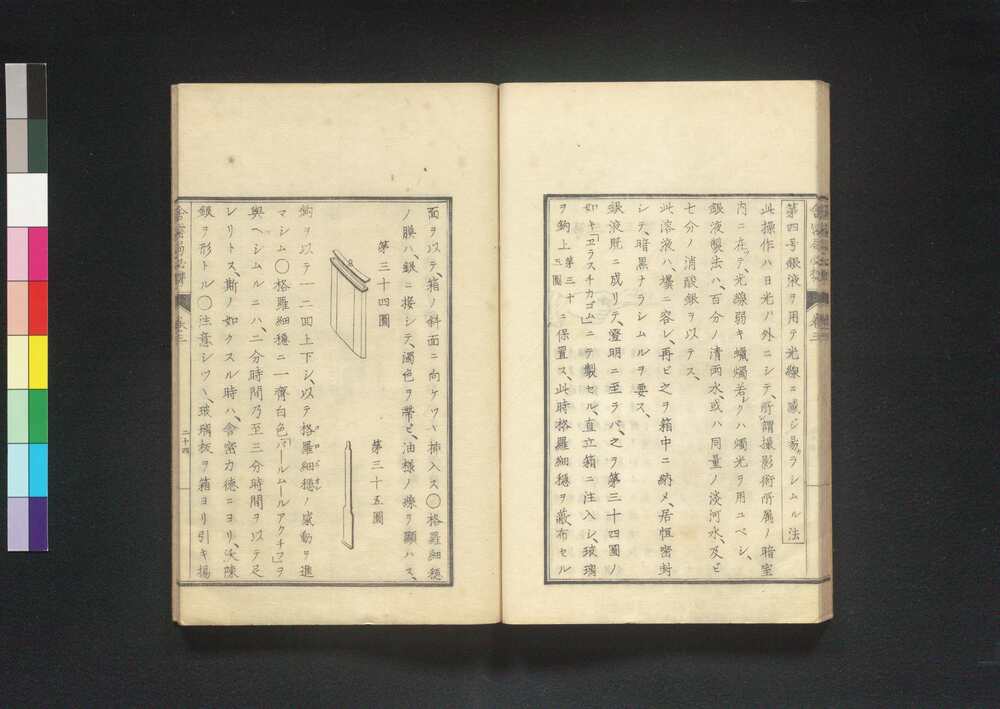 第四号銀液ヲ用テ光線ニ感ジ易カラシムル法
此操作ハ日光ノ外ニシテ、所謂撮影術所属ノ暗室
内ニ在テ、光線弱キ蠟燭若クハ燭光ヲ用ユベシ、
銀液製法ハ、百分ノ清雨水、或ハ同量ノ淡河水、及ビ
七分ノ消酸銀ヲ以テス、
此溶液ハ、壜ニ容レ、再ビ之ヲ箱中ニ納メ、居恒密封
シテ、暗黒ナラシムルヲ要ス、
銀液既ニ成リテ、澄明ニ至ラバ、之ヲ第三十四圖ノ
如キ「エラスチカゴム」ニテ製セル、直立箱ニ注入シ、玻璃
ヲ鈎上第三十三圖ニ保置ス、此時格羅細穏ヲ蔽布セル
面ヲ以テ、箱ノ斜面ニ向ケツヽ挿入ス〇格羅細穏
ノ膜ハ、銀ニ接シテ、濁色ヲ帯ビ、油様ノ線ヲ顯ハス、
第三十四圖
第三十五圖
鈎ヲ以テ一二回上下シ、以テ格羅細穏ノ感動ヲ進
マシム〇格羅細穏ニ一齊白色「パールムールアクチフ」ヲ
與ヘシムルニハ、二分時間乃至三分時間ヲ以テ足
レリトス、斯ノ如クスル時ハ、舎密力徳ニヨリ、沃陳
銀ヲ形トル〇注意シツヽ、玻璃板ヲ箱ヨリ引キ揚
巻三
二十四